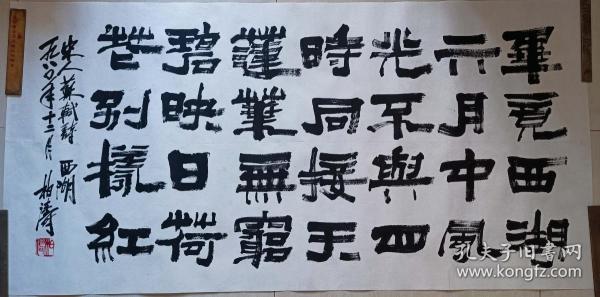 畢竟西湖
六月中風
光不與四
時同接天
蓮葉無窮
碧映日荷
花別樣紅
宋人蘇軾詩 西湖
年十二月 柏濤
孔夫子旧书网
www.kongfz.com